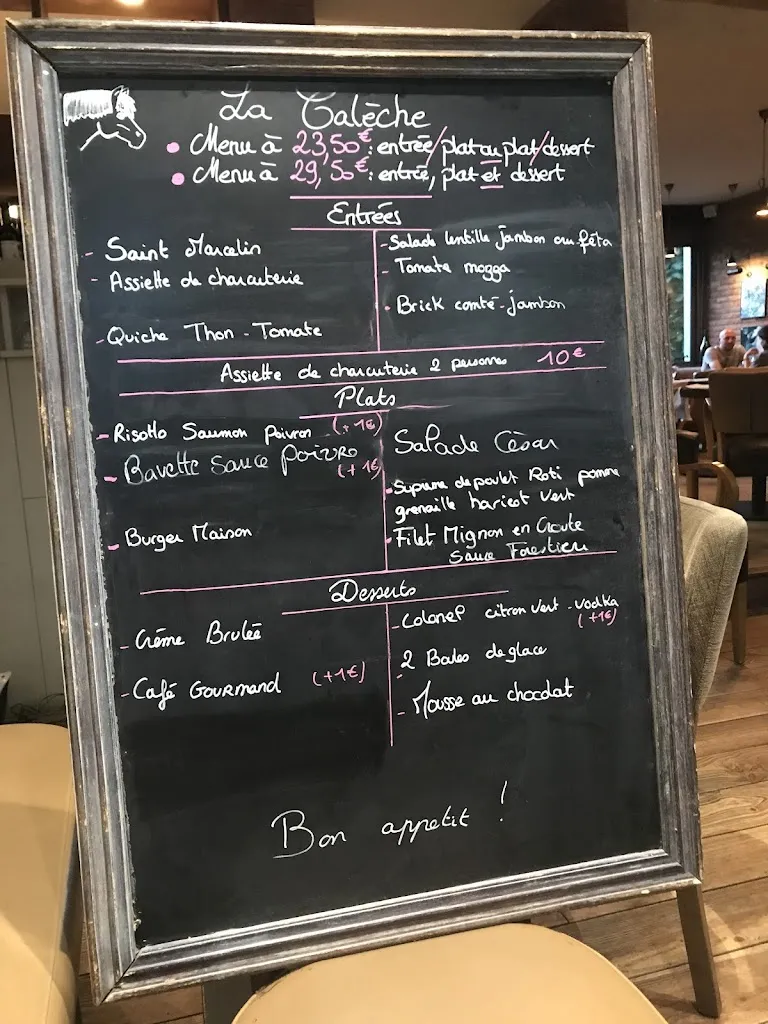 La Calèche
• Menu à 23,50€: entrée/plat ou plat/dessert
• Menu à 29,50€: entrée, plat et dessert
Entrées
- Saint Marcelin
- Assiette de charcuterie
- Quiche Thon - Tomate
- Salade lentille jambon ou féta
- Tomate mozza
- Brick comté - jambon
Assiette de charcuterie 2 personnes 10€
Plats
- Risotto Saumon Poivron (+1€)
- Bavette Sauce Poivre (+1€)
- Burger Maison
Salade César
- Suprème de poulet Roti pomme
grenaille haricot vert
- Filet Mignon en Croute
Sauce Forestier
Desserts
- Crème Brulée
- Café Gourmand (+1€)
- Colonel citron vert - vodka
(+1€)
- 2 Boules de glace
- Mousse au chocolat
Bon appetit !